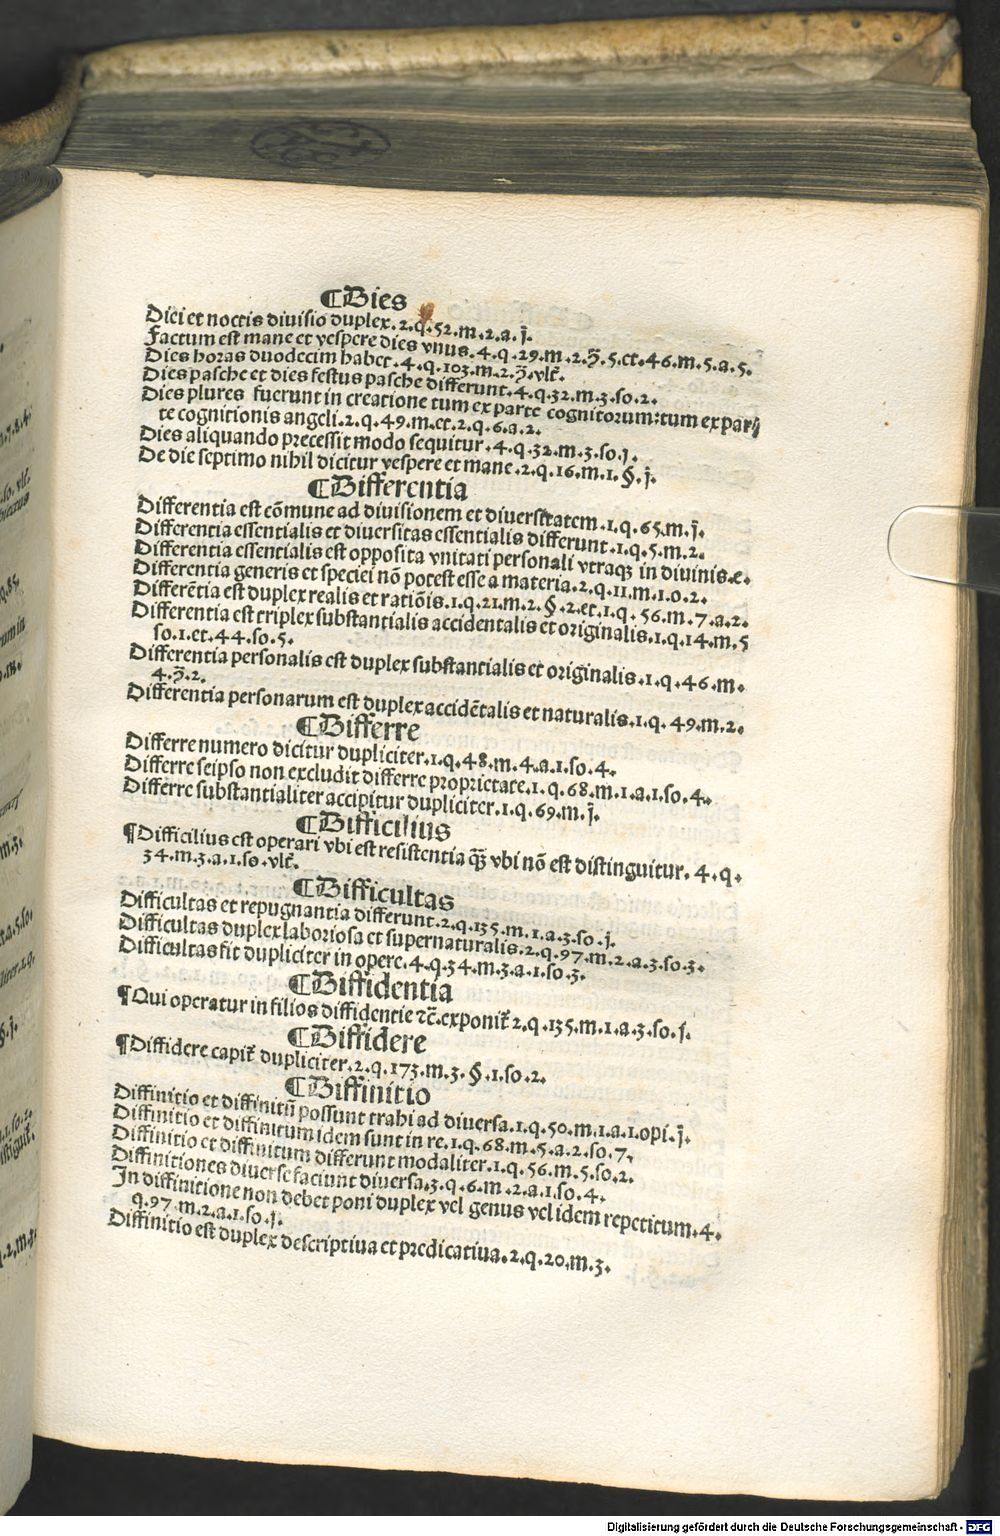 ¶Dies
Diei et noctis diuisio duplex.2.q.52.m.2.a.j̄.
Factum est mane et vespere dies vnus.4.q.29.m.2.ꝫ̄.5.et.46.m.5.a.5.
Dies horas duodecim habet.4.q.103.m.2.ꝫ̄.vlt̄.
Dies pasche et dies festus pasche differunt.4.q.32.m.3.so.2.
Dies plures fuerunt in creatione tum ex parte cognitorum:tum ex par
te cognitionis angeli.2.q.49.m.et.2.q.6.a.2.
Dies aliquando precessit modo sequitur.4.q.32.m.3.so.j.
De die septimo nihil dicitur vespere et mane.2.q.16.m.1.§.j̄.
¶Differentia
Differentia est cōmune ad diuisionem et diuersitatem.1.q.65.m.j̄.
Differentia essentialis et diuersitas essentialis differunt.1.q.5.m.2.
Differentia essentialis est opposita vnitati personali vtraqꝫ in diuinis.e.
Differentia generis et speciei nō potest esse a materia.2.q.11.m.1.o.2.
Differētia est duplex realis et ratiōis.1.q.21.m.2.§.2.et.1.q.56.m.7.a.2.
Differentia est triplex substantialis accidentalis et originalis.1.q.14.m.5
so.1.et.44.so.5.
Differentia personalis est duplex substantialis et originalis.1.q.46.m.
4.ꝫ̄.2.
Differentia personarum est duplex accidētalis et naturalis.1.q.49.m.2.
¶Differre
Differre numero dicitur dupliciter.1.q.48.m.4.a.1.so.4.
Differre seipso non excludit differre proprietate.1.q.68.m.1.a.1.so.4.
Differre substantialiter accipitur dupliciter.1.q.69.m.j̄.
¶Difficilius
¶Difficilius est operari vbi est resistentia qꝫ̄ vbi nō est distinguitur.4.q.
34.m.3.a.1.so.vlt̄.
¶Difficultas
Difficultas et repugnantia differunt.2.q.135.m.1.a.3.so.j.
Difficultas duplex laboriosa et supernaturalis.2.q.97.m.2.a.3.so.3.
Difficultas fit dupliciter in opere.4.q.34.m.3.a.1.so.3.
¶Diffidentia
¶Qui operatur in filios diffidentie ⁊c̄.exponit̄ 2.q.135.m.1.a.3.so.j.
¶Diffidere
¶Diffidere capit̄ dupliciter.2.q.173.m.3.§.1.so.2.
¶Diffinitio
Diffinitio et diffinitū possunt trahi ad diuersa.1.q.50.m.1.a.1.opi.j̄.
Diffinitio et diffinitum idem sunt in re.1.q.68.m.5.a.2.so.7.
Diffinitio et diffinitum differunt modaliter.1.q.56.m.5.so.2.
Diffinitiones diuerse faciunt diuersa.3.q.6.m.2.a.1.so.4.
In diffinitione non debet poni duplex vel genus vel idem repetitum.4.
q.97 m.2.a.1.so.j.
Diffinitio est duplex descriptiua et predicatiua.2.q.20.m.3.
Digitalisierung gefördert durch die Deutsche Forschungsgemeinschaft - DFG